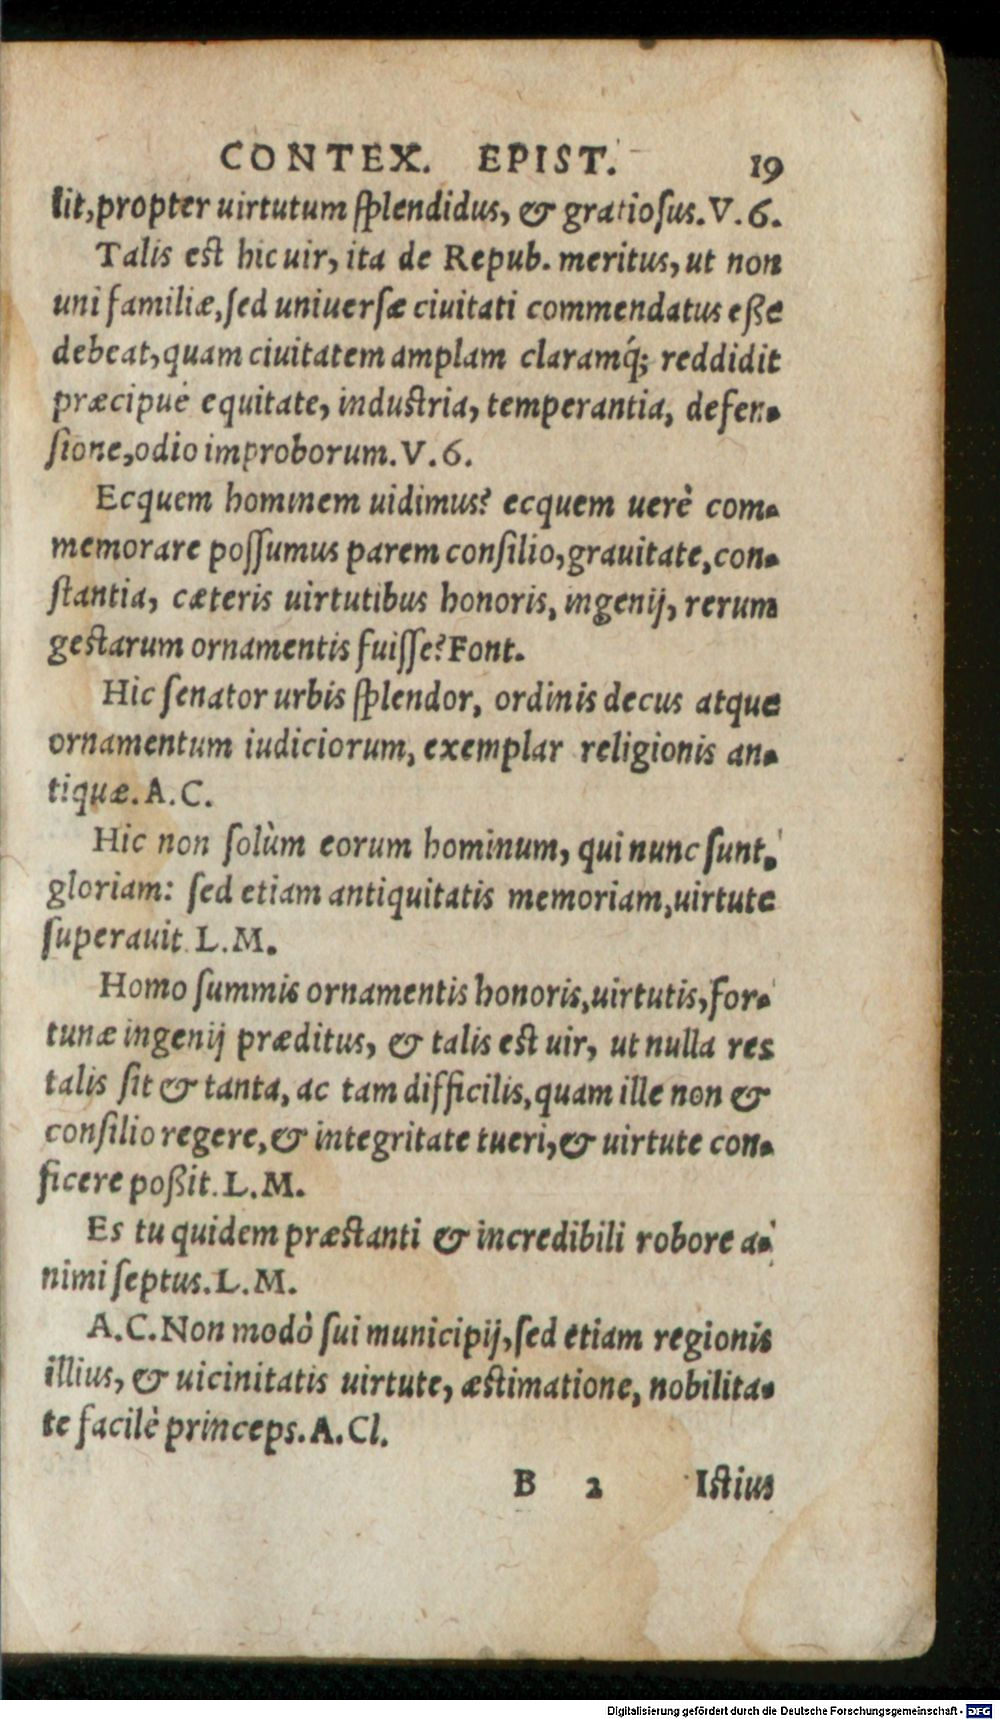 CONTEX. EPIST. 19
lit, propter uirtutum ſplendidus, & gratioſus. V. 6.
Talis est hic uir, ita de Repub. meritus, ut non
uni familiæ, ſed uniuerſæ ciuitati commendatus eße
debeat, quam ciuitatem amplam claramq́; reddidit
præcipuè equitate, industria, temperantia, defen-
ſione, odio improborum. V. 6.
Ecquem hominem uidimus? ecquem uerè com-
memorare poſſumus parem conſilio, grauitate, con-
ſtantia, cæteris uirtutibus honoris, ingenij, rerum
gestarum ornamentis fuiſſe? Font.
Hic ſenator urbis ſplendor, ordinis decus atque
ornamentum iudiciorum, exemplar religionis an-
tiquæ. A. C.
Hic non ſolùm eorum hominum, qui nunc ſunt,
gloriam: ſed etiam antiquitatis memoriam, uirtute
ſuperauit L. M.
Homo ſummis ornamentis honoris, uirtutis, for-
tunæ ingenij præditus, & talis est uir, ut nulla res
talis ſit & tanta, ac tam difficilis, quam ille non &
conſilio regere, & integritate tueri, & uirtute con-
ficere poßit. L. M.
Es tu quidem præstanti & incredibili robore a-
nimi ſeptus. L. M.
A. C. Non modò ſui municipij, ſed etiam regionis
illius, & uicinitatis uirtute, æstimatione, nobilita-
te facilè princeps. A. Cl.
B 2 Istius
Digitalisierung gefördert durch die Deutsche Forschungsgemeinschaft - DFG